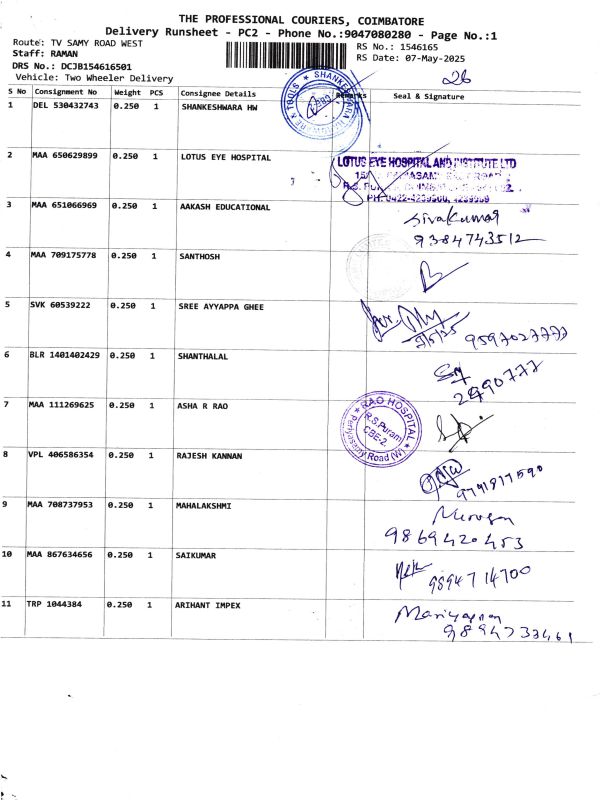 THE PROFESSIONAL COURIERS, COIMBATORE
Delivery Runsheet - PC2 - Phone No.:9047080280 - Page No.:1
Route: TV SAMY ROAD WEST RS No.: 1546165
Staff: RAMAN RS Date: 07-May-2025
DRS No.: DCJB154616501
Vehicle: Two Wheeler Delivery 26
S No Consignment No Weight PCS Consignee Details Remarks Seal & Signature
1 DEL 530432743 0.250 1 SHANKESHWARA HW
SHANKESHWARA HARDWARE N TOOLS
2 MAA 650629899 0.250 1 LOTUS EYE HOSPITAL
LOTUS EYE HOSPITAL AND INSTITUTE LTD
3 MAA 651066969 0.250 1 AAKASH EDUCATIONAL
Sivakumar
9384743512
4 MAA 709175778 0.250 1 SANTHOSH
5 SVK 60539222 0.250 1 SREE AYYAPPA GHEE
9597027777
6 BLR 1401402429 0.250 1 SHANTHALAL
7 MAA 111269625 1 0.250 1 ASHA R RAO
RAO HOSPITAL
R.S.Puram
CBE-2.
Periyasamy Road (W)
8 VPL 406586354 0.250 1 RAJESH KANNAN
9 MAA 708737953 0.250 1 MAHALAKSHMI
Murugan
9869420453
10 MAA 867634656 0.250 1 SAIKUMAR
9894714700
11 TRP 1044384 0.250 1 ARIHANT IMPEX
Mariyappan
9894733461